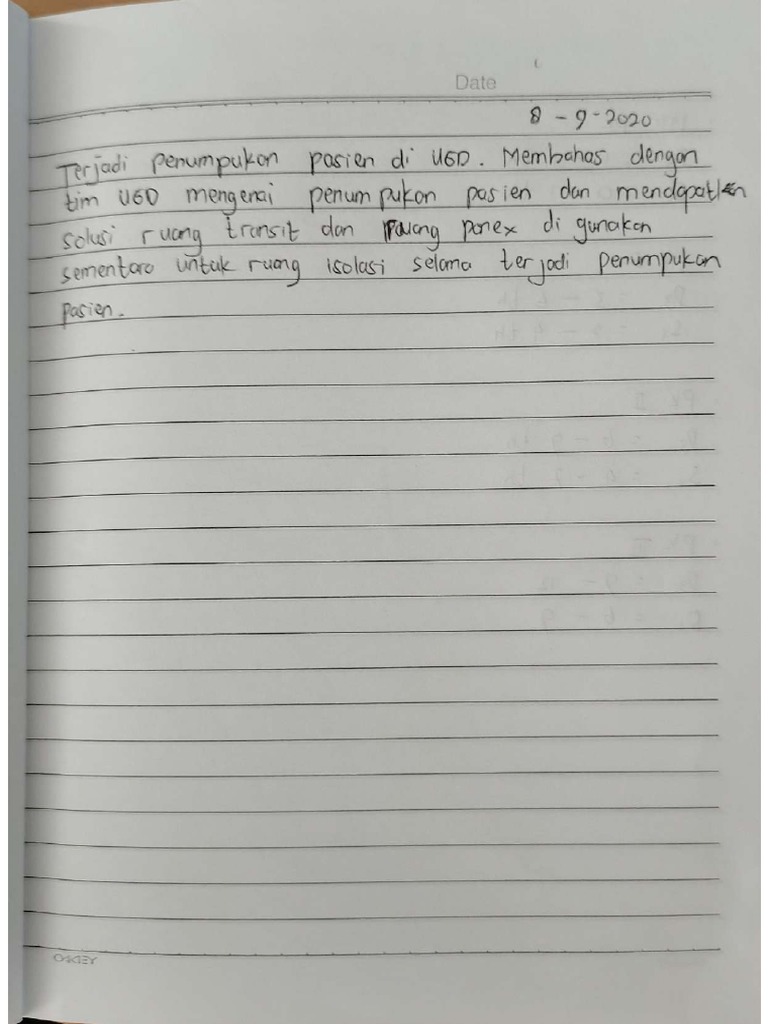 Date
8 - 9 - 2020
Terjadi penumpukan pasien di UGD. Membahas dengan
tim UGD mengenai penumpukan pasien dan mendapatkan
solusi ruang transit dan ruang ponex di gunakan
sementara untuk ruang isolasi selama terjadi penumpukan
pasien.